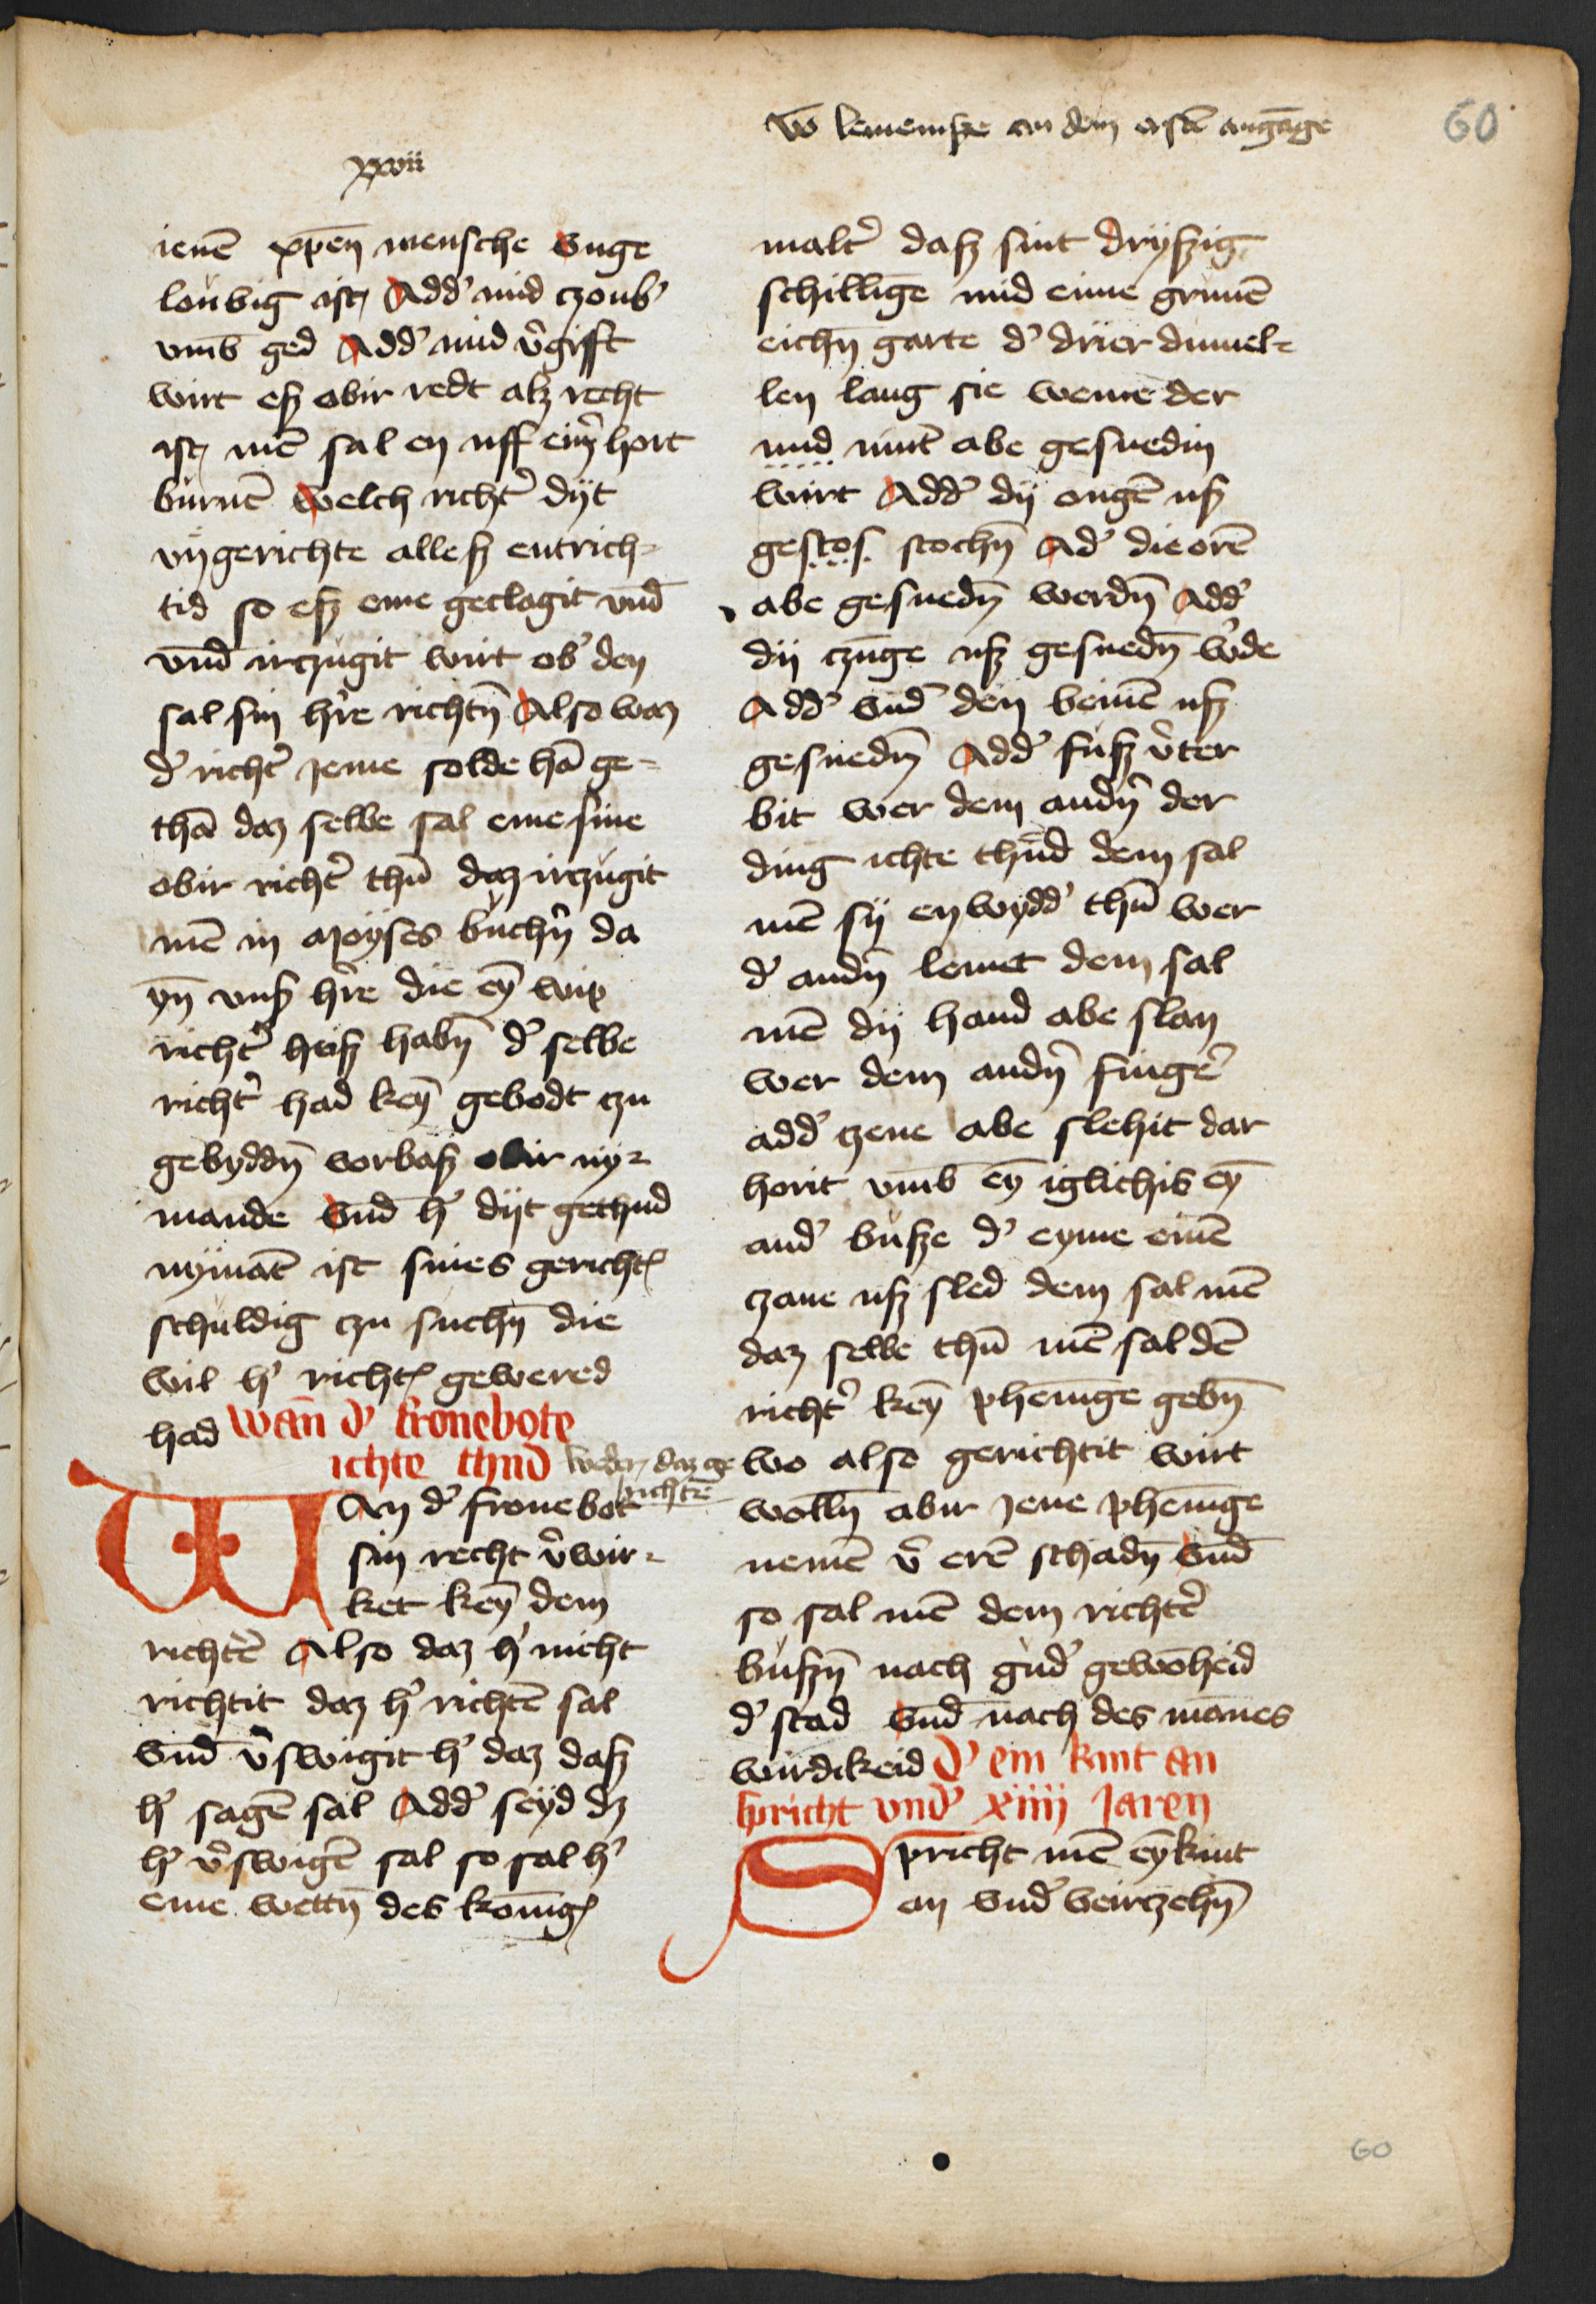 60
vō lemeniße an dem erstē angāge
xxvii
ienē xp̄en mensche vnge
loubig ist Add' mid czoub'
vmb ged Add' mid v'gift
wirt eß obir redt alz recht
ist mē sal en uff eim' hort
burnē welch richt' dÿt
vngerichte alleß entrich-
tid so eß eme geclagit vnd
vnd irczugit wirt ob' den
sal sin h're richtn̄ Also waz
d' richt' jeme solde hā ge-
thā daz selbe sal eme sine
obir richt' thū daz irczugit
mē in moÿses buchn̄ da
yn̄ vnß h're die eȳ wip
richt' heiß habn̄ d' selbe
richt' had keȳ gebodt czu
gebyddn̄ vorbaß obir nÿ-
mande vnd h' dÿt gethud
nÿmāt ist sines gericht
schuldig czu suchn̄ die
wil h' richt gewered
had wan̄ d' fronebote
ichte thud weder daz ge
richtē
WAn d' fronebot
sin recht v'wir-
ket keȳ dem
richt'ē Also daz h' nicht
richtit daz h' richtē sal
vnd v'swigit h' daz daß
h' sagē sal Add' seÿd dz
h' v'swigē sal so sal h'
eme wettn̄ des konīg
malt' daß sint drÿßig
schillīge mid eime grunē
eichn̄ garte d' drier dumel-
len lang sie weme der
mid munt abe gesnedin
wirt Add' dÿ ougē uß
gestos stochn̄ Ad' die orē
abe gesnedn̄ werdn̄ Add'
dÿ czūge uß gesnedn̄ w'de
Add' vnd' den beinē uß
gesnedn̄ Add' fuß v'ter
bit wer dem andn̄ der
ding ichte thud dem sal
mē sÿ en wydd' thū wer
d' andn̄ lemet dem sal
mē dÿ hand abe slan
wer dem andn̄ fing'
add' czene abe slehit dar
horit vmb eȳ iglichis eȳ
and' buße d' eyme eīnē
czane uß sled dem sal mē
daz selbe thū mē sal dē
richt' keȳ phenīge gebn̄
wo also gerichtit wirt
wolln̄ abir jene phenīge
nemē v' erē schadn̄ vnd
so sal mē dem richt'ē
bußn̄ nach gud' gewōheid
d' stad vnd nach des mānes
wirdikeid d' ein kint an
spricht vnd' xiiii Jaren
Spricht mē eȳ kint
an vnd' veirczehn̄
60